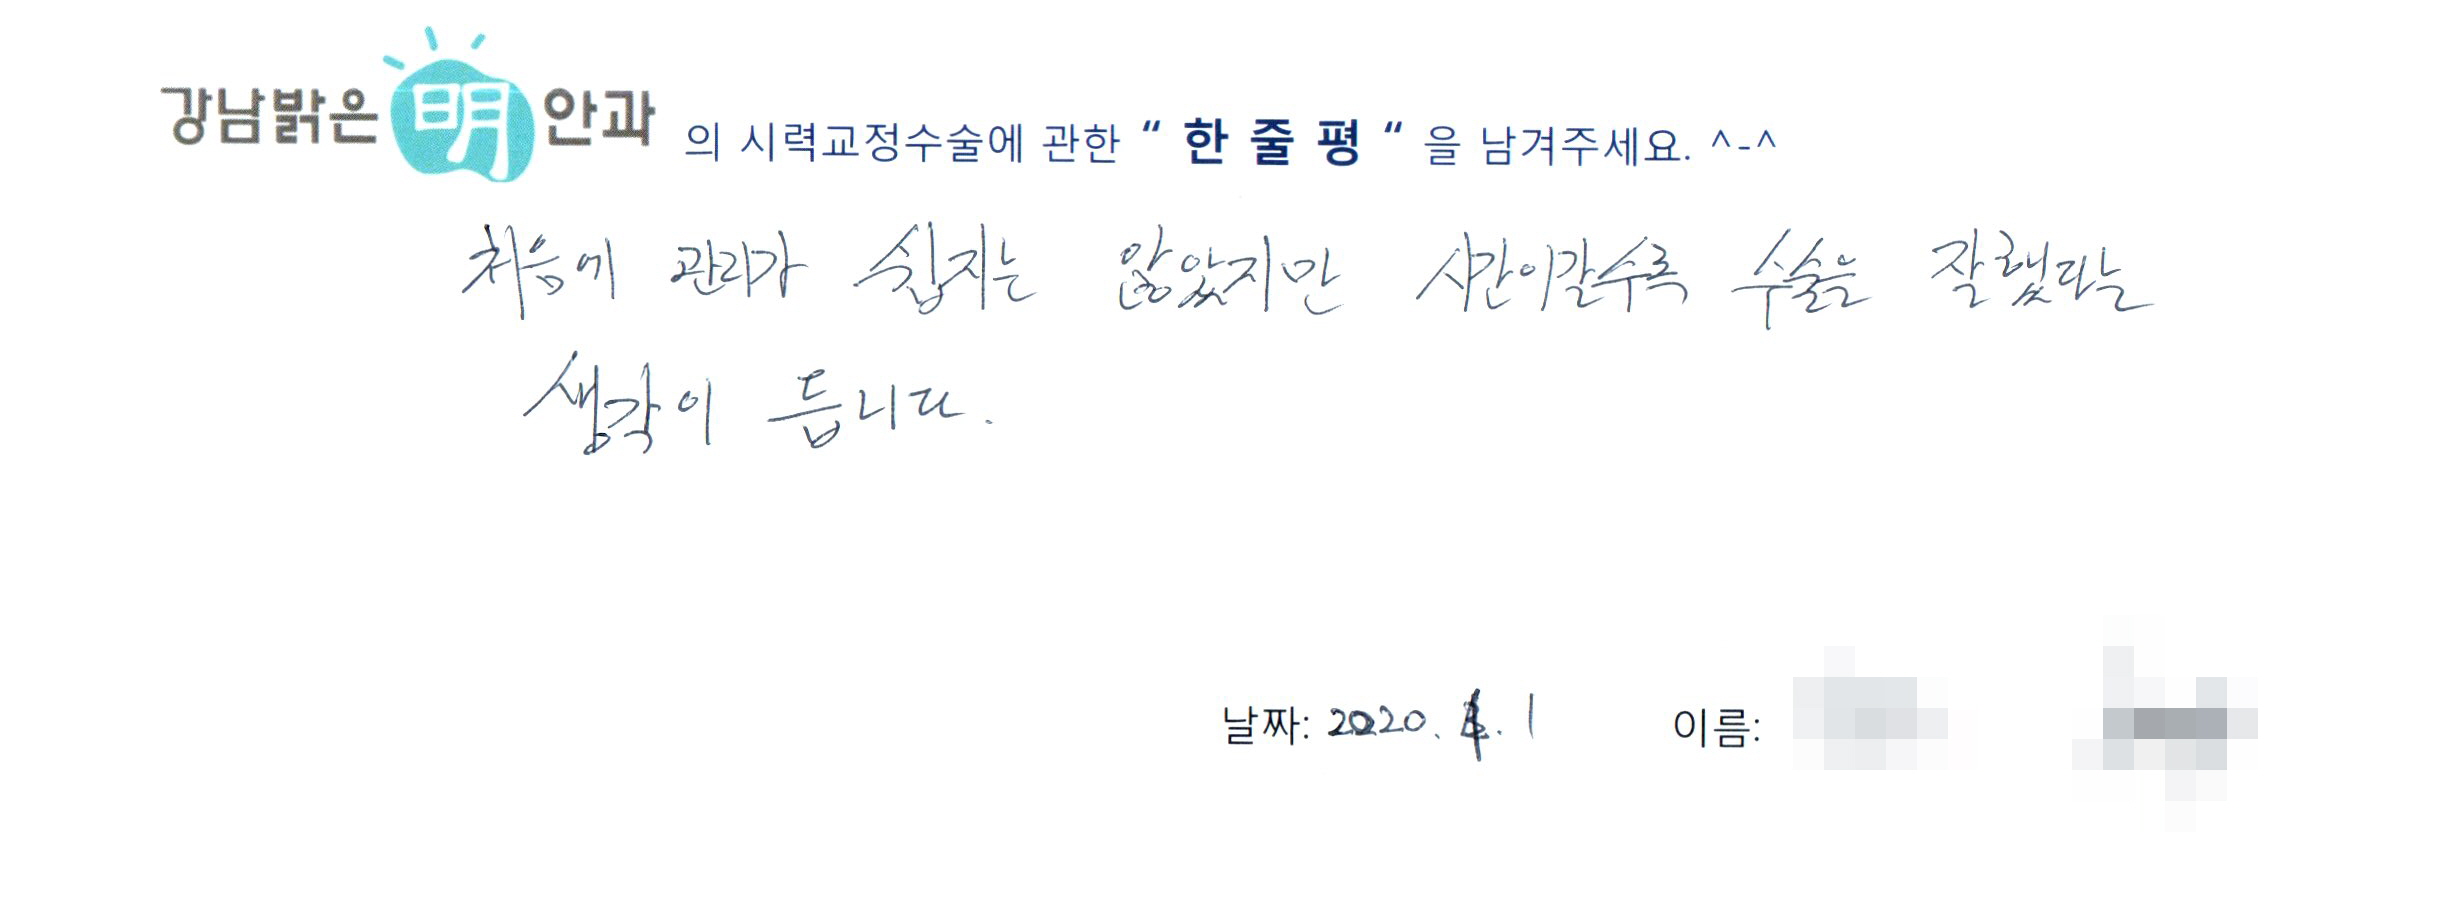 강남밝은 明 안과 의 시력교정수술에 관한 “ 한 줄 평 “ 을 남겨주세요. ^-^
처음에 관리가 쉽지는 않았지만 시간이갈수록 수술을 잘했다는
생각이 듭니다.
날짜: 2020. 4. 1 이름: